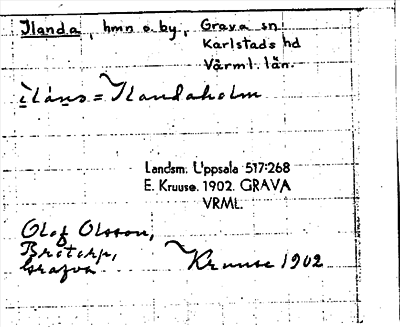 Ilanda, hmn o. by, Grava sn
Karlstads hd
Värml. län.
ĩlans = Ilandaholm
Landsm. Uppsala 517:268
E. Kruuse. 1902. GRAVA
VRML.
Olof Olsson,
Brotorp,
Grafva
Kruuse 1902